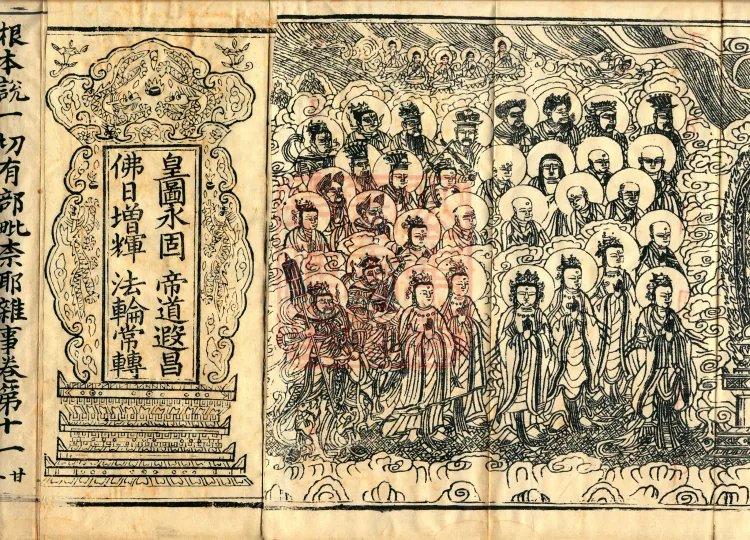 皇圖永固 帝道遐昌
佛日增輝 法輪常轉
根本說一切有部毗奈耶雜事卷第十一 廿一